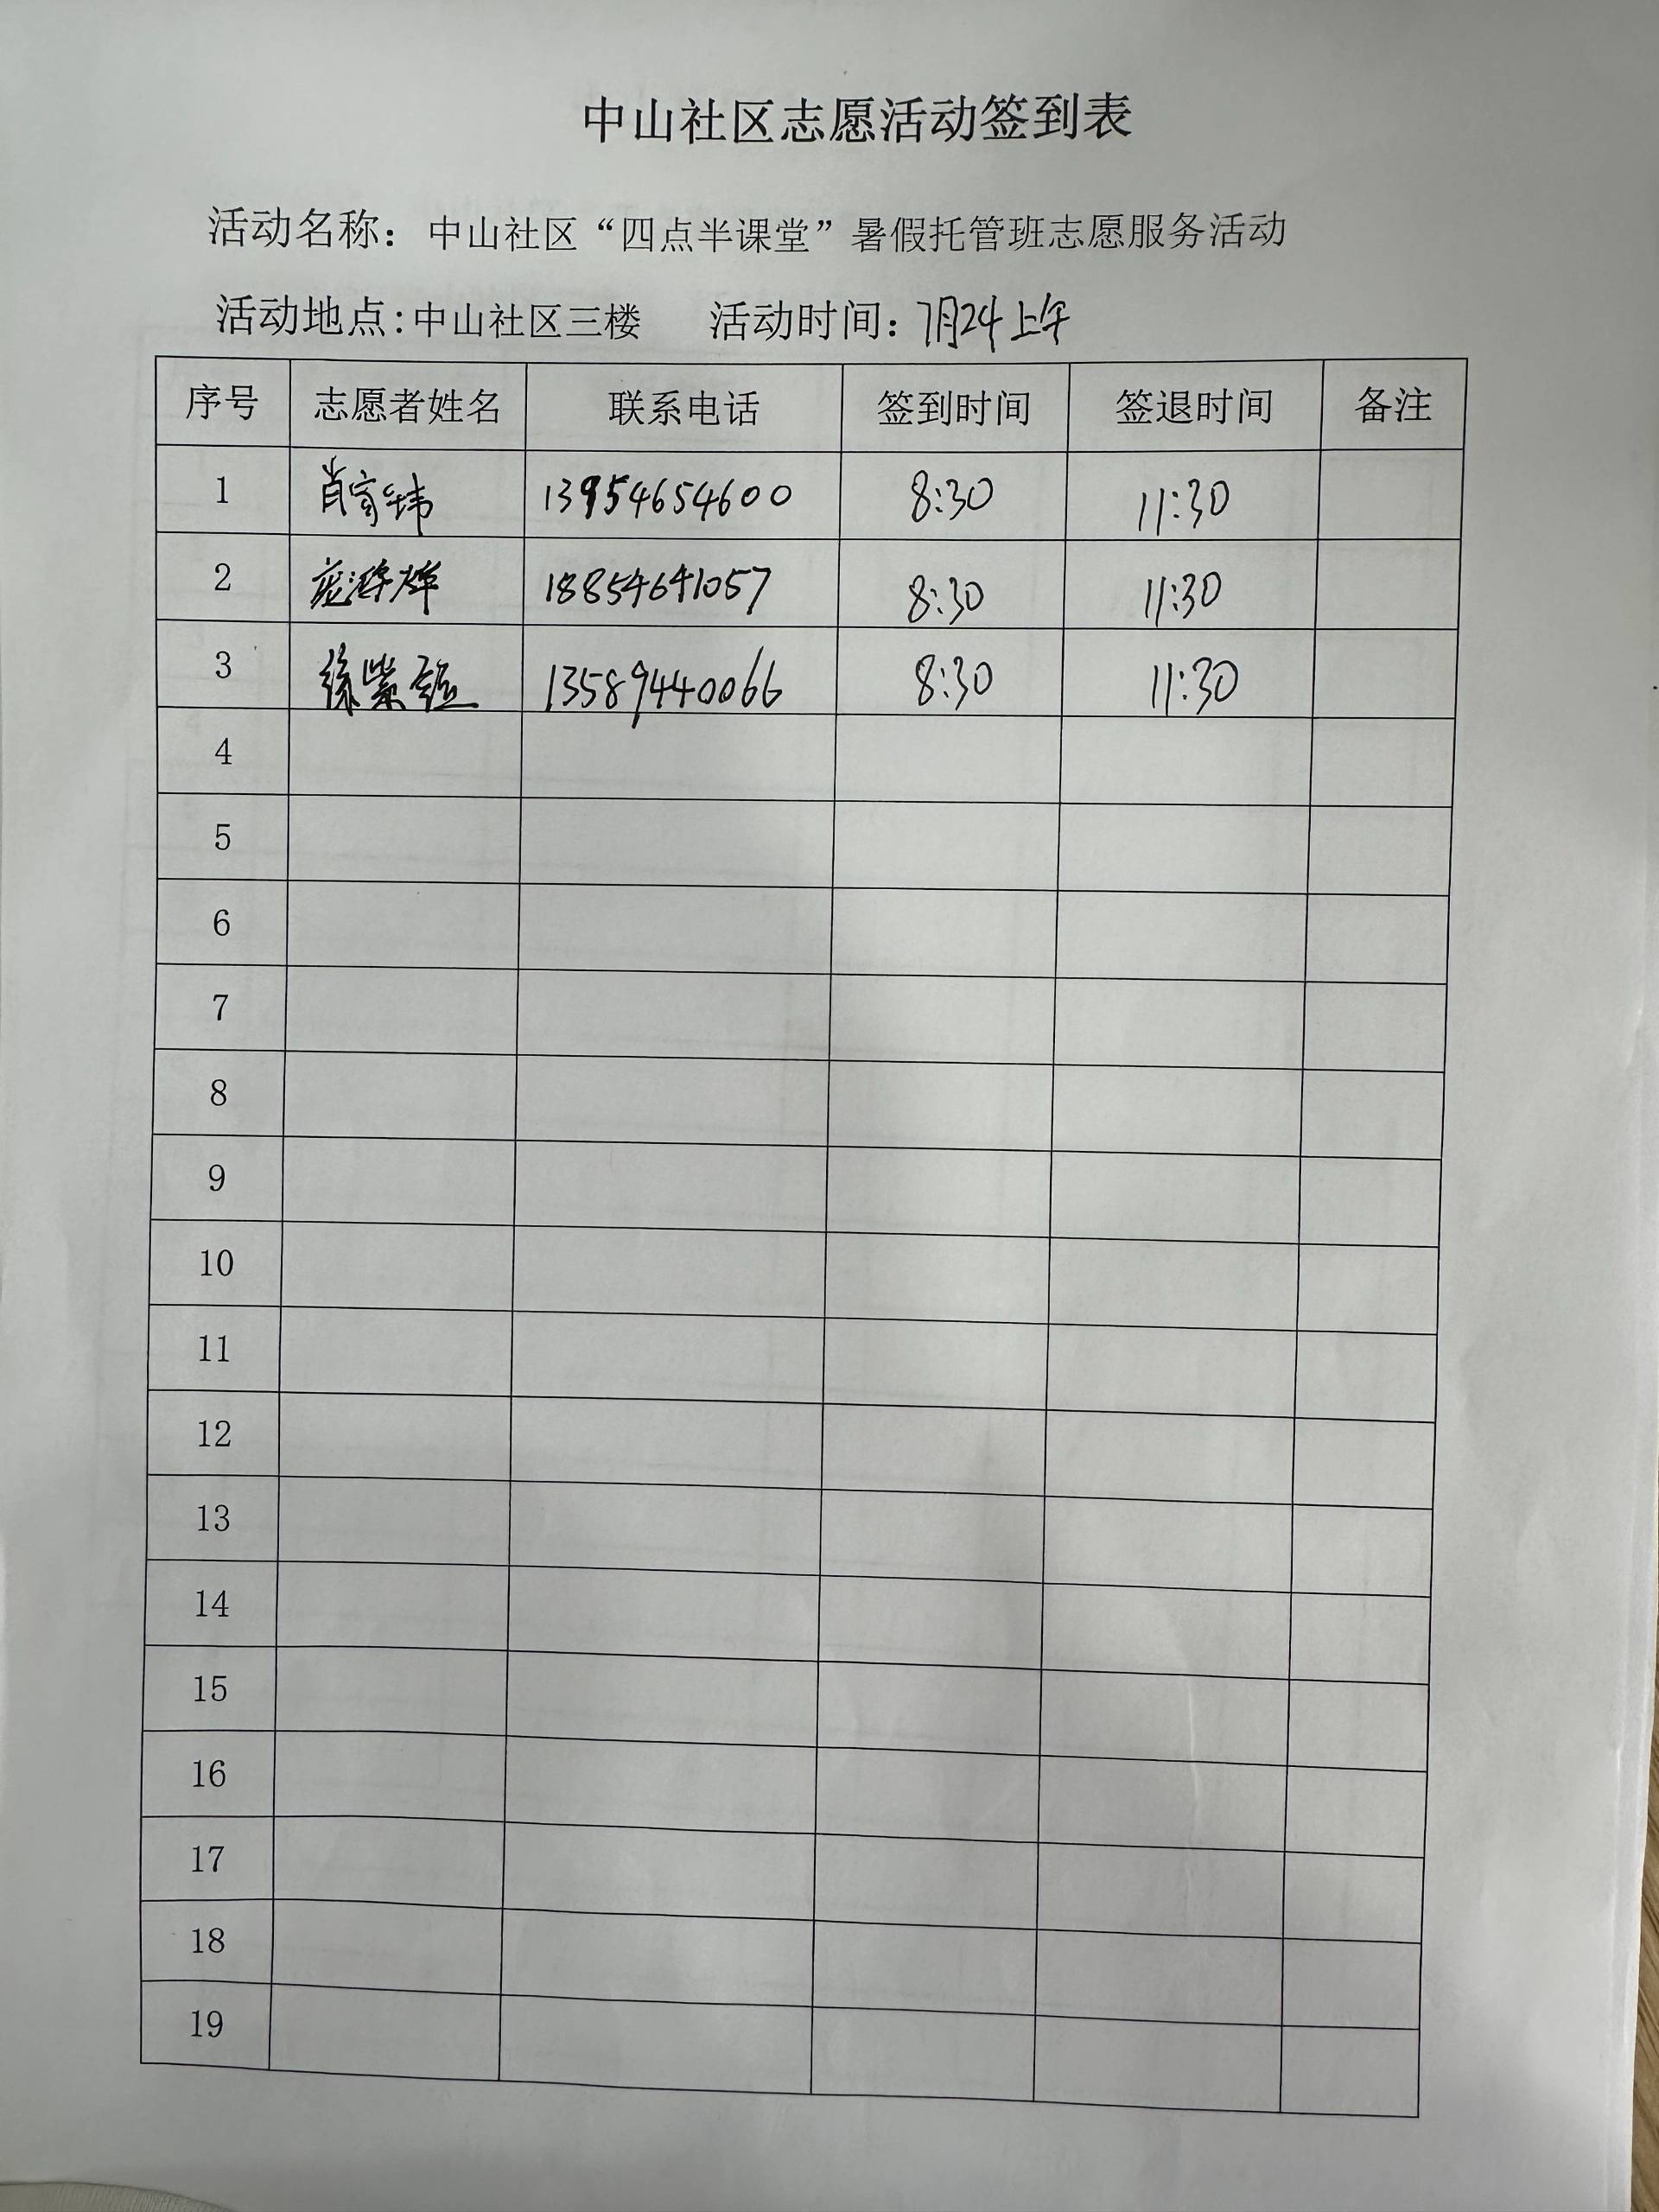 中山社区志愿活动签到表
活动名称：中山社区“四点半课堂”暑假托管班志愿服务活动
活动地点:中山社区三楼 活动时间：7月24上午
序号 志愿者姓名 联系电话 签到时间 签退时间 备注
1 肖 13954654600 8:30 11:30
2 18854641057 8:30 11:30
3 徐紫 13589440066 8:30 11:30
4
5
6
7
8
9
10
11
12
13
14
15
16
17
18
19